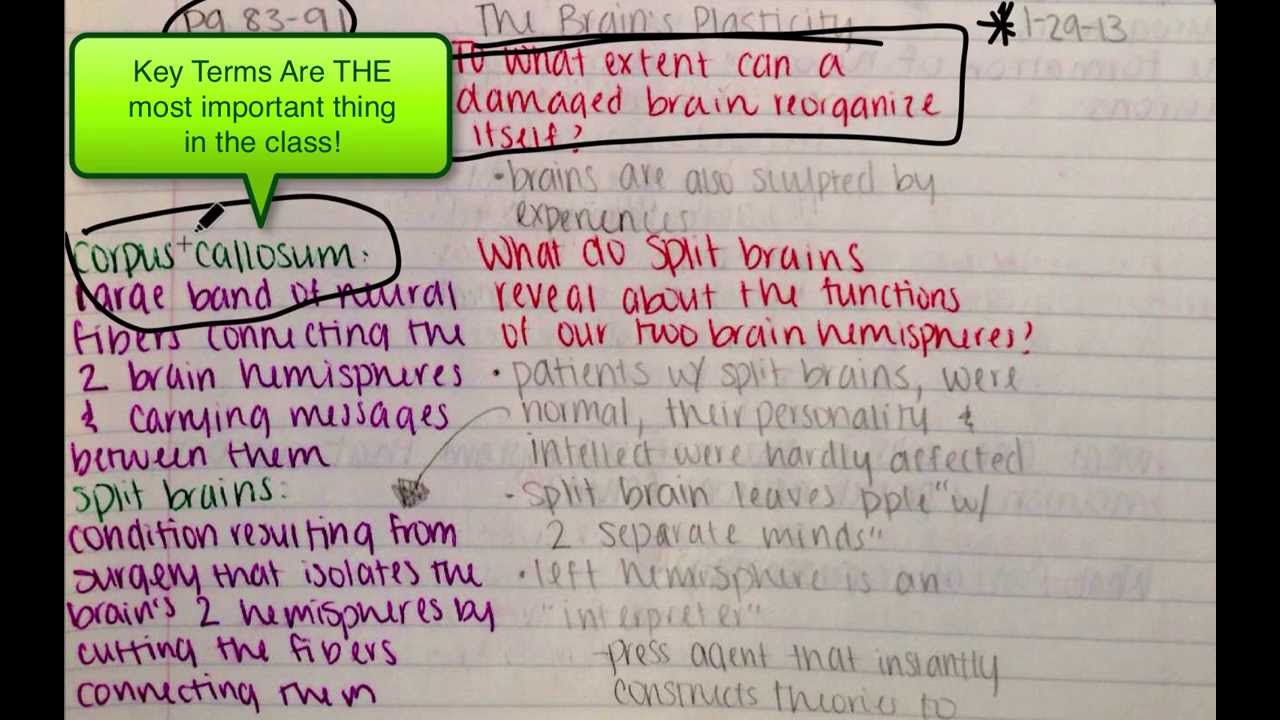 pg 83-91
The Brain's Plasticity
*1-29-13
Key Terms Are THE
most important thing
in the class!
To what extent can a
damaged brain reorganize
itself?
• brains are also sculpted by
experiences
corpus + callosum:
large band of neural
fibers connecting the
2 brain hemispheres
& carrying messages
between them
split brains:
condition resulting from
surgery that isolates the
brain's 2 hemispheres by
cutting the fibers
connecting them
What do split brains
reveal about the functions
of our two brain hemispheres?
• patients w/ split brains, were
normal, their personality &
intellect were hardly affected
- split brain leaves pple "w/
2 separate minds"
• left hemisphere is an
"interpreter"
-press agent that instantly
constructs theories to